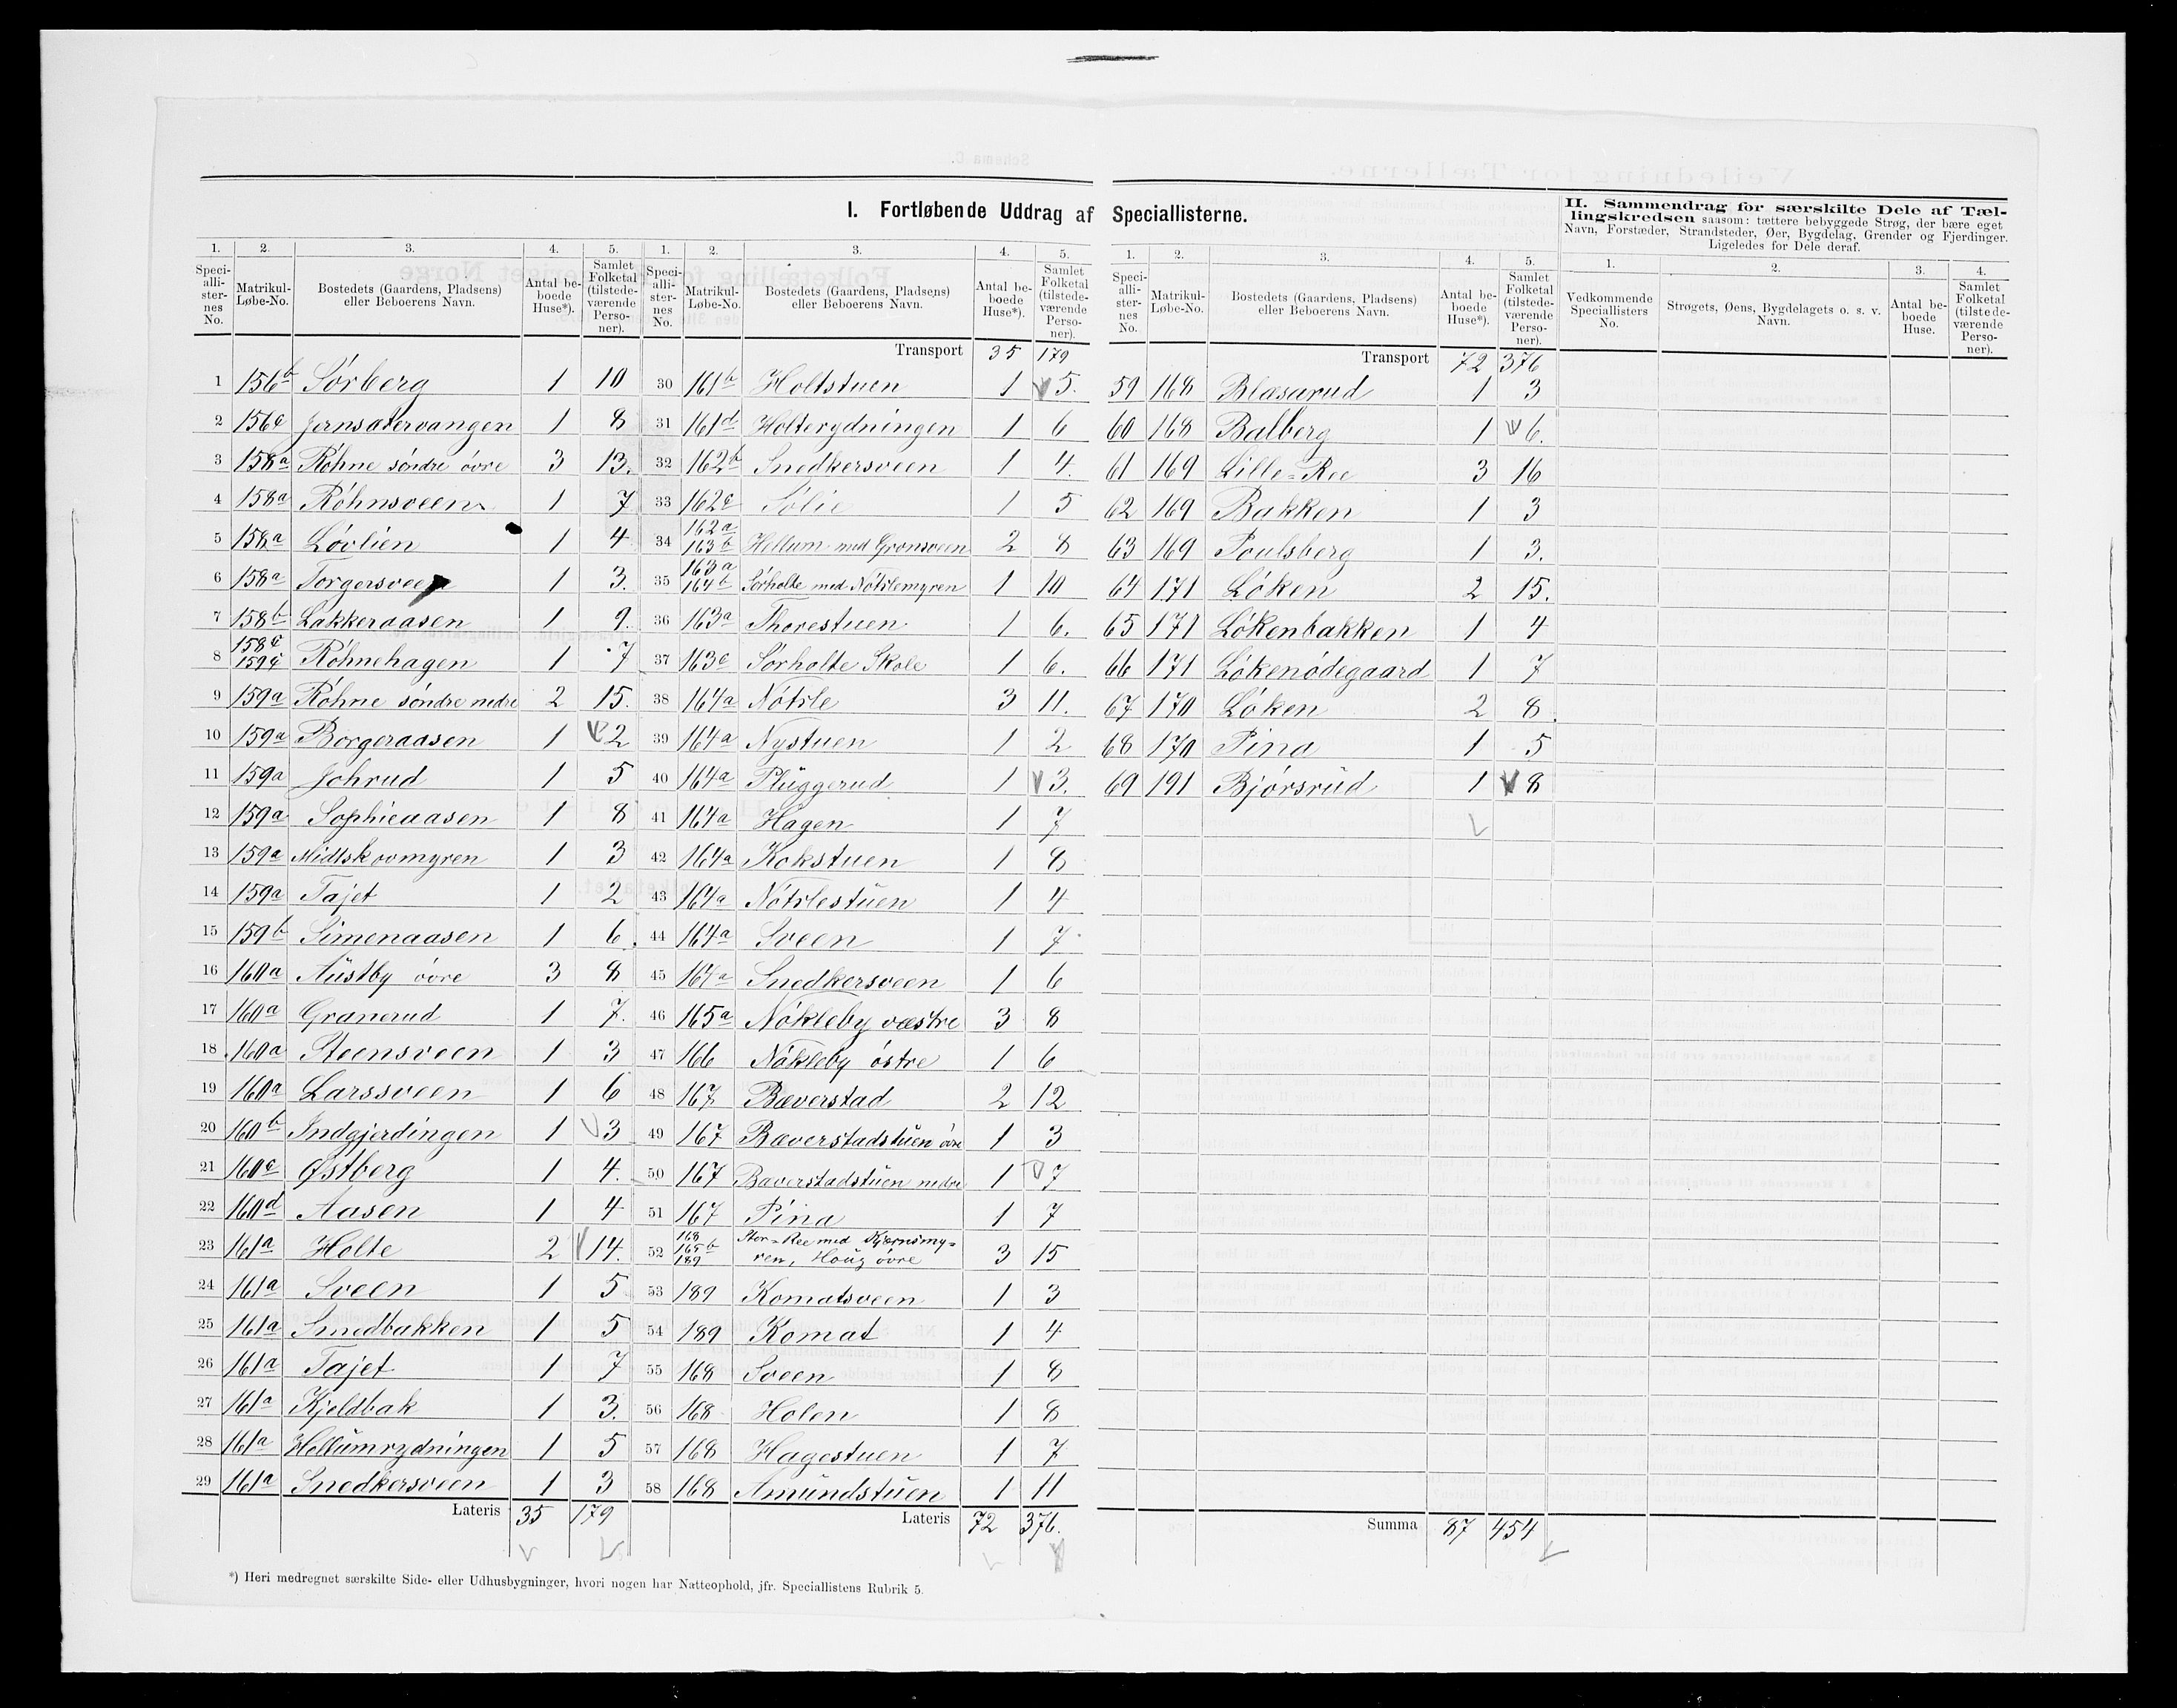 I. Fortløbende Uddrag af Speciallisterne.
II. Sammendrag for særskilte Dele af Tæl-
lingskredsen saasom: tættere bebyggede Strøg, der bære eget
Navn, Forstæder, Strandsteder, Øer, Bygdelag, Grender og Fjerdinger.
Ligeledes for Dele deraf.
1. 2. 3. 4. 5.
Speci-alli-ster-nes No. Matrikul-Løbe-No. Bostedets (Gaardens, Pladsens) eller Beboerens Navn. Antal be-boede Huse*). Samlet Folketal (tilstede-værende Perso-ner).
1 156b Sörberg 1 10
2 156c Jernsætervangen 1 8
3 158a Röhne söndre övre 3 13.
4 158a Röhnsveen 1 7
5 158a Lövlien 1 4
6 158a Torgersveen 1 3.
7 158b Lakkeraasen 1 9.
8 158c 159c Röhnehagen 1 7
9 159a Röhne söndre nedre 2 15.
10 159a Borgeraasen 1 2
11 159a Johrud 1 5
12 159a Sophieaasen 1 8
13 159a Midtskovmyren 1 3
14 159a Tajet 1 2
15 159b Simenaasen 1 6.
16 160a Austby övre 3 8
17 160a Granerud 1 7.
18 160a Steensveen 1 3
19 160a Larssveen 1 6
20 160b Indgjerdingen 1 3
21 160c Østberg 1 4.
22 160d Aasen 1 4
23 161a Holte 2 14.
24 161a Sveen 1 5
25 161a Smedbakken 1 5
26 161a Tajet 1 7
27 161a Kjeldbak 1 3.
28 161a Hellumrydningen 1 5
29 161a Snedkersveen 1 3
Lateris 35 179
1. 2. 3. 4. 5.
Speci-alli-ster-nes No. Matrikul-Løbe-No. Bostedets (Gaardens, Pladsens) eller Beboerens Navn. Antal be-boede Huse*). Samlet Folketal (tilstede-værende Perso-ner).
Transport 35 179
30 161b Holtstuen 1 5.
31 161d Holterydningen 1 6
32 162b Snedkersveen 1 4.
33 162c Sölie 1 5
34 162a 163b Hellum med Gronsveen 2 8
35 163a 164b Sörholte med Nötslemyren 1 10
36 163a Thorestuen 1 6.
37 163c Sörholte Skole 1 6.
38 164a Nötsle 3 11.
39 164a Nystuen 1 2
40 164a Pluggerud 1 3.
41 164a Hagen 1 7
42 164a Kokstuen 1 8
43 164a Nötslestuen 1 4
44 164a Sveen 1 7
45 164a Snedkersveen 1 6
46 165a Nökleby væstre 3 8
47 166 Nökleby östre 1 6
48 167 Bæverstad 2 12
49 167 Bæverstadstuen övre 1 3
50 167 Bæverstadstuen nedre 1 7
51 167 Pina 1 7
52 168 165b 189 Stor-Ree med Kjernsmy-
ren, Houg övre 3 15
53 189 Komatsveen 1 3
54 189 Komat 1 4
55 168 Sveen 1 8
56 168 Holen 1 8
57 168 Hagestuen 1 7
58 168 Amundstuen 1 11
Lateris 72 376.
1. 2. 3. 4. 5.
Speci-alli-ster-nes No. Matrikul-Løbe-No. Bostedets (Gaardens, Pladsens) eller Beboerens Navn. Antal be-boede Huse*). Samlet Folketal (tilstede-værende Perso-ner).
Transport 72 376
59 168 Blæsarud 1 3
60 168 Balberg 1 6.
61 169 Lille-Ree 3 16
62 169 Bakken 1 3
63 169 Poulsberg 1 3.
64 171 Löken 2 15.
65 171 Lökenbakken 1 4
66 171 Lökenödegaard 1 7
67 170 Löken 2 8.
68 170 Pina 1 5
69 191 Bjórsrud 1 8
Summa 87 454
1. 2. 3. 4.
Vedkommende Speciallisters No. Strøgets, Øens, Bygdelagets o. s. v. Navn. Antal be-boede Huse. Samlet Folketal (tilstede-værende Perso-ner).
*) Heri medregnet særskilte Side- eller Udhusbygninger, hvori nogen har Natteophold, jfr. Speciallistens Rubrik 5.